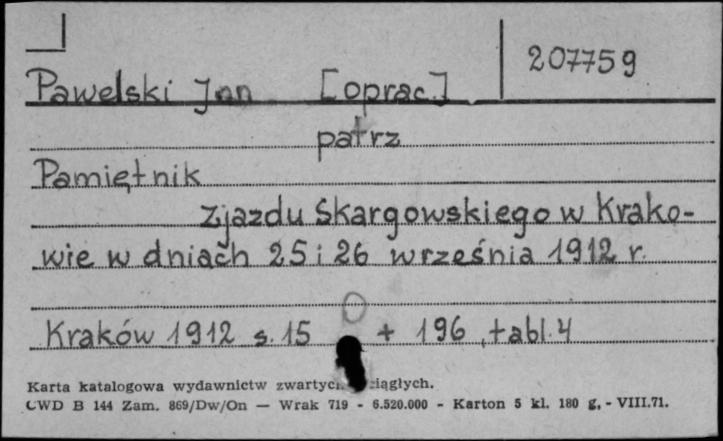 207759
Pawelski Jan [oprac.]
patrz
Pamiętnik
Zjazdu Skargowskiego w Krako-
wie w dniach 25 i 26 września 1912 r.
Kraków 1912 s. 15 + 196, tabl. 4
Karta katalogowa wydawnictw zwartych ciągłych.
CWD B 144 Zam. 869/Dw/On — Wrak 719 - 6.520.000 - Karton 5 kl. 180 g. - VIII.71.